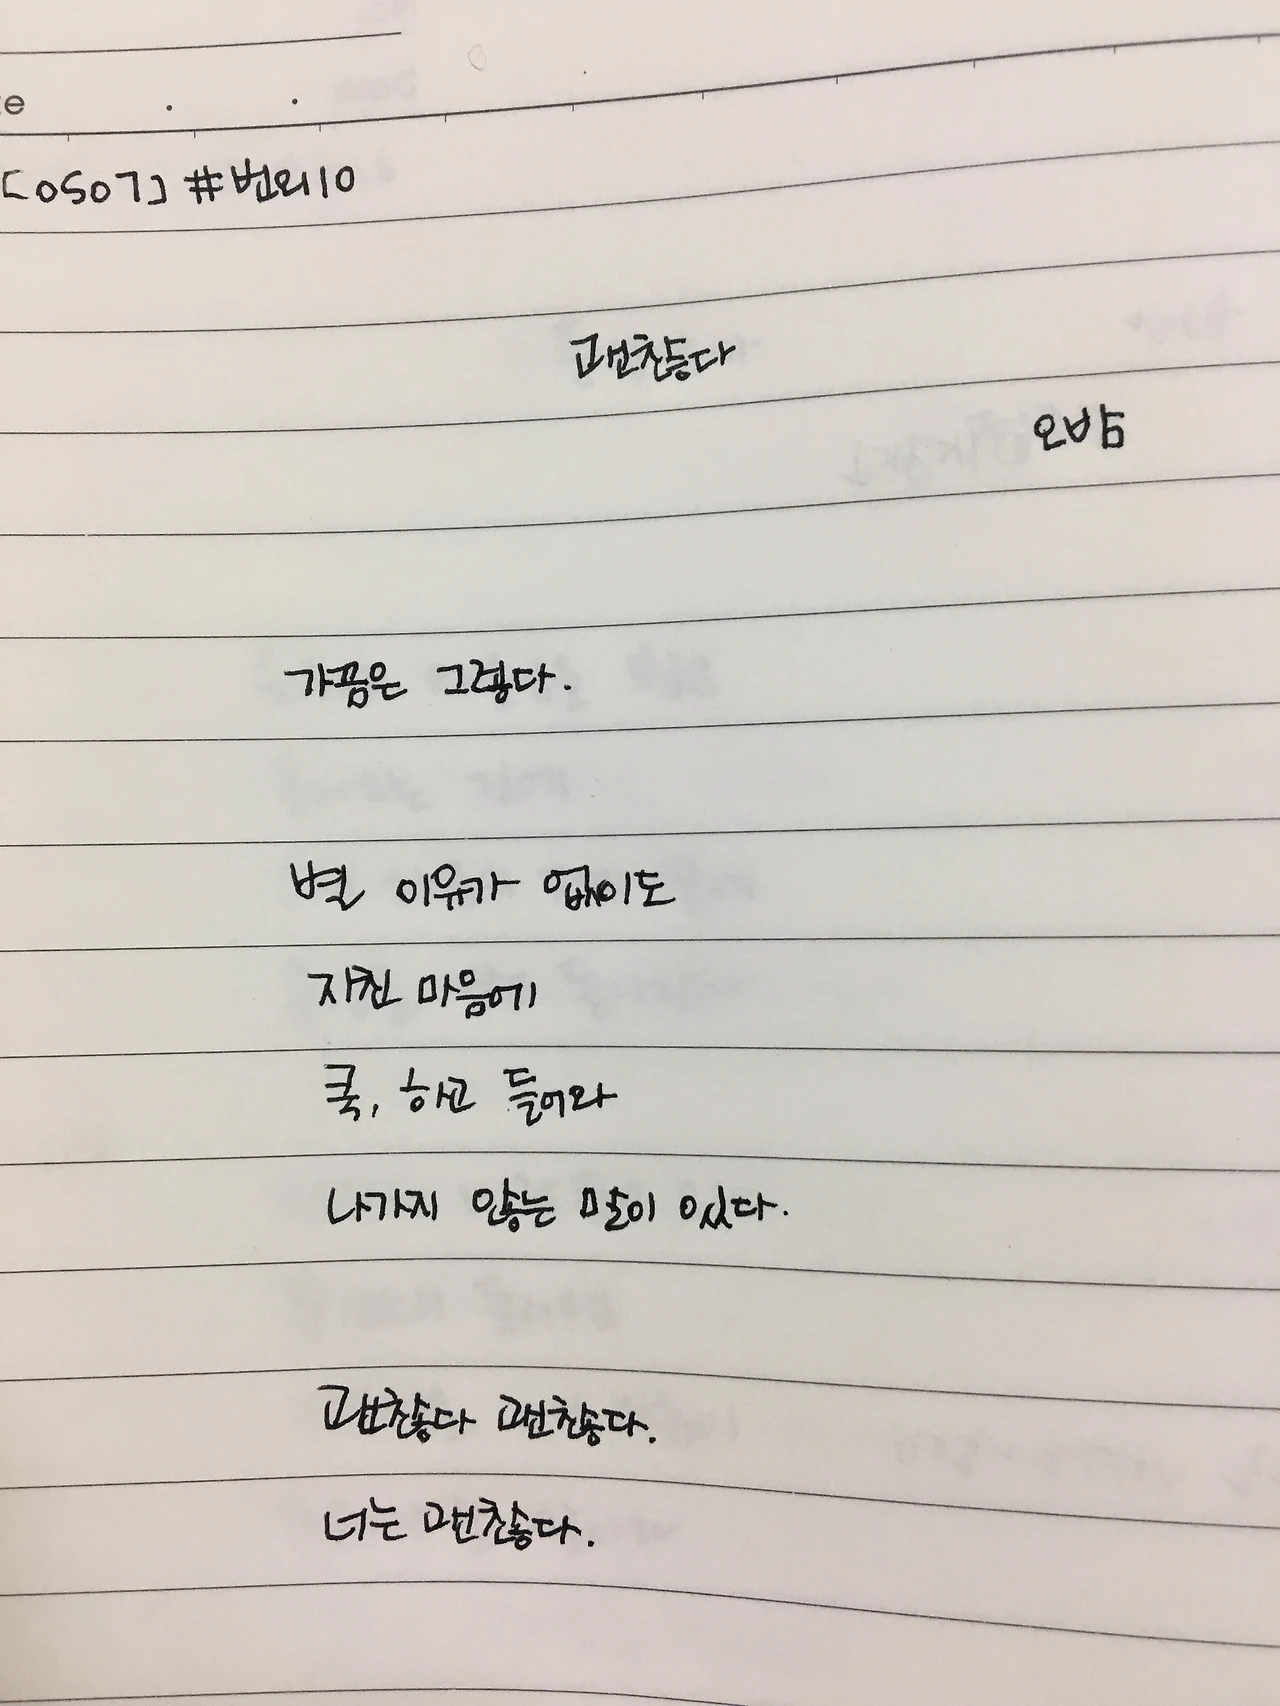 te . .
[0507] #번외10
괜찮다
오밤
가끔은 그렇다.
별 이유가 없이도
지친 마음에
쿡, 하고 들어와
나가지 않는 말이 있다.
괜찮다 괜찮다.
너는 괜찮다.